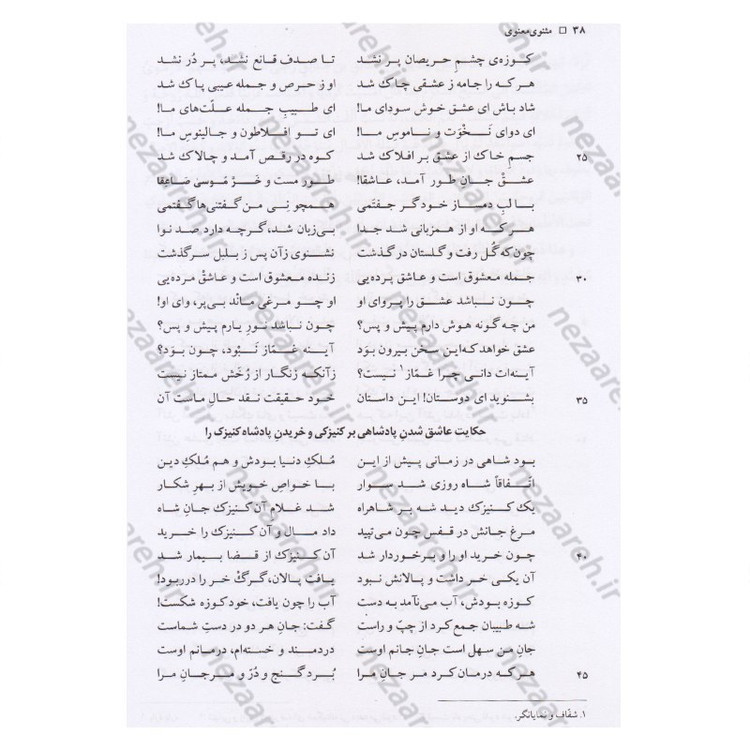 ۳۸ □ مثنوی معنوی
کوزه‌ی چشمِ حریصان پر نشد تا صدف قانع نشد، پر دُر نشد
هر که را جامه ز عشقی چاک شد او ز حرص و جمله عیبی پاک شد
شاد باش ای عشقِ خوش سودای ما! ای طبیبِ جمله علّت‌های ما!
ای دوای نَخْوَت و ناموسِ ما! ای تو افلاطون و جالینوسِ ما!
۲۵ جسمِ خاک از عشق بر افلاک شد کوه در رقص آمد و چالاک شد
عشقْ جانِ طور آمد، عاشقا! طور مست و خَرَّ مُوسیٰ صَاعِقا
با لبِ دمسازِ خود گر جفتَمی همچو نِی من گفتنی‌ها گفتمی
هر که او از همزبانی شد جدا بی‌زبان شد، گرچه دارد صد نوا
چون که گُل رفت و گلستان در گذشت نشنوی زآن پس ز بلبل سرگذشت
۳۰ جمله معشوق است و عاشق پرده‌یی زنده معشوق است و عاشقْ مرده‌یی
چون نباشد عشق را پروای او او چو مرغی ماند بی‌پر، وای او!
من چه گونه هوش دارم پیش و پس؟ چون نباشد نورِ یارم پیش و پس؟
عشق خواهد که‌این سخن بیرون بوَد آینه غمّاز نَبْوَد، چون بوَد؟
آینه‌ات دانی چرا غمّاز۱ نیست؟ زآنکه زنگار از رُخَش ممتاز نیست
۳۵ بشنوید ای دوستان! این داستان خود حقیقت نقدِ حالِ ماست آن
حکایت عاشق شدنِ پادشاهی بر کنیزکی و خریدنِ پادشاه کنیزک را!
بود شاهی در زمانی پیش از این مُلکِ دنیا بودش و هم مُلکِ دین
اتّفاقاً شاه روزی شد سوار با خواصِ خویش از بهرِ شکار
یک کنیزک دید شه بر شاهراه شد غلامِ آن کنیزک جانِ شاه
مرغِ جانش در قفس چون می‌تپید داد مال و آن کنیزک را خرید
۴۰ چون خرید او را و برخوردار شد آن کنیزک از قضا بیمار شد
آن یکی خر داشت و پالانش نبود یافت پالان، گرگْ خر را درربود!
کوزه بودش، آب می‌نآمد به دست آب را چون یافت، خود کوزه شکست!
شه طبیبان جمع کرد از چپّ و راست گفت: جانِ هر دو در دستِ شماست
جانِ من سهل است جانِ جانم اوست دردمند و خسته‌ام، درمانم اوست
۴۵ هر که درمان کرد مر جانِ مرا بُرد گنج و دُرّ و مرجانِ مرا
۱. شفّاف و نمایانگر.
nezaareh.ir